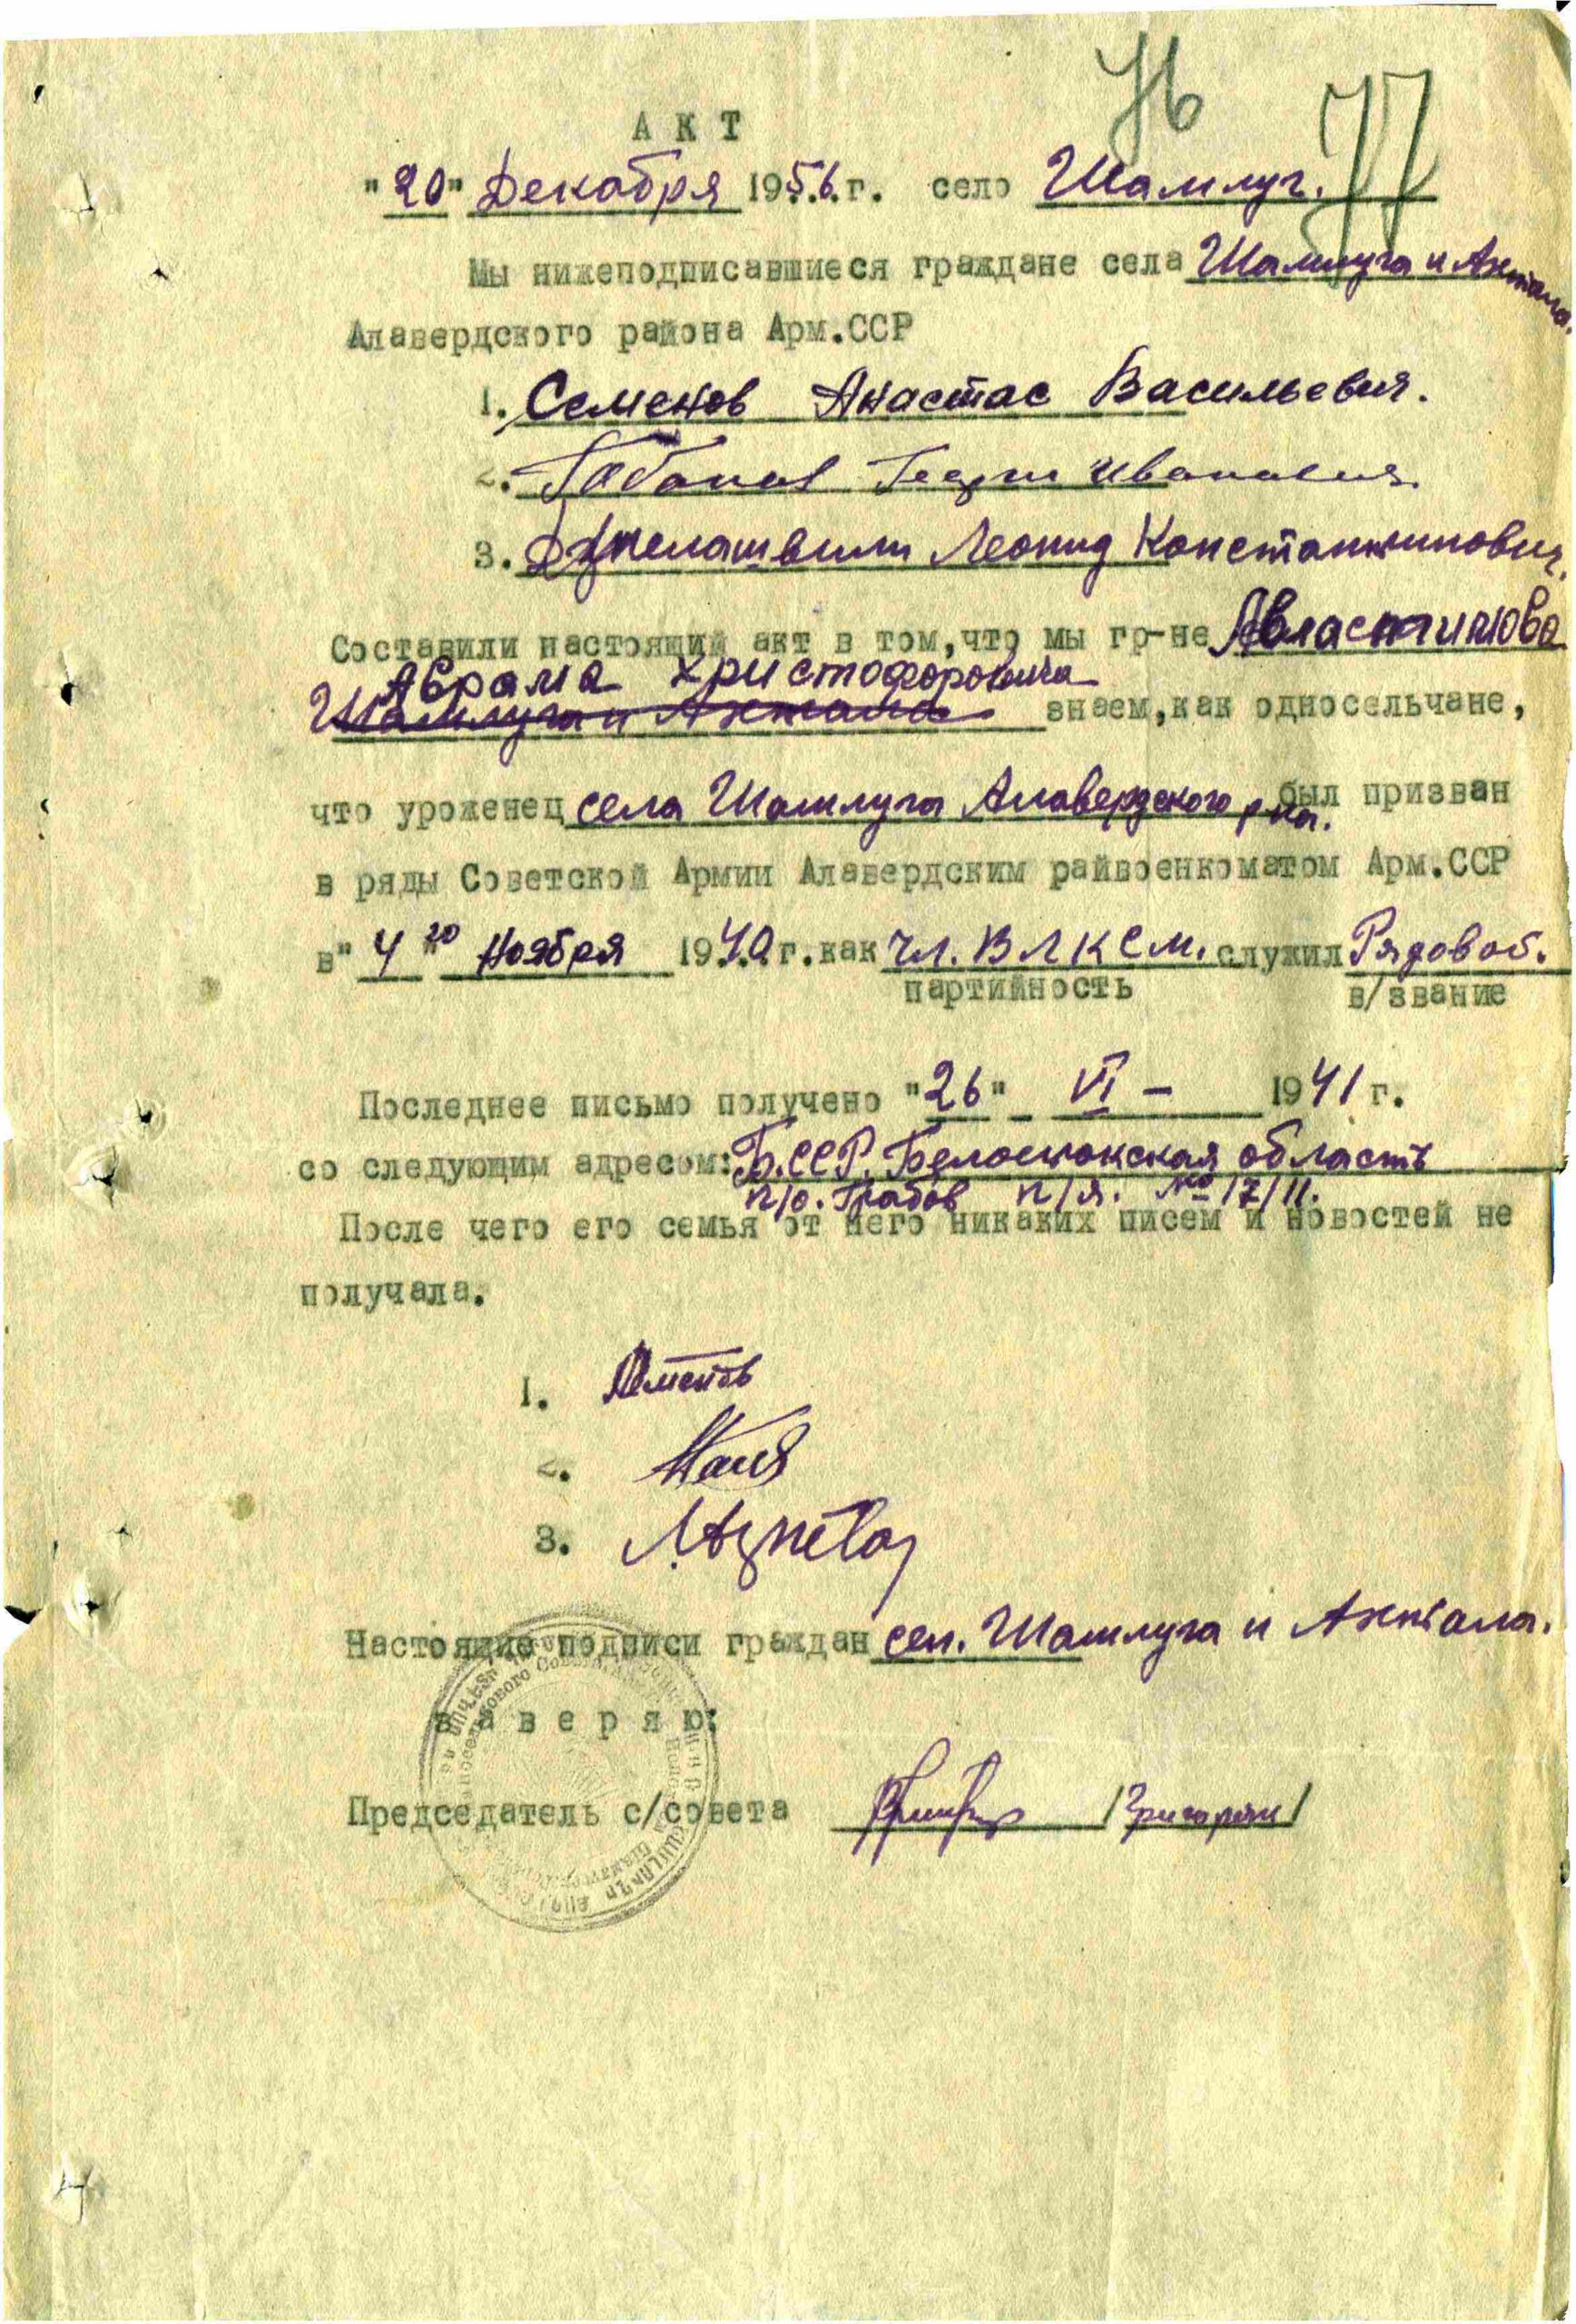 76 77
АКТ
"20" Декабря 1956 г. село Шамлуг.
Мы нижеподписавшиеся граждане села Шамлуга и Ахтала.
Алавердского района Арм.ССР
1. Семенов Анастас Васильевич.
2. Иванович.
3. Леонид Константинович.
Составили настоящий акт в том,что мы гр-не Авластимова
Аврама Христофоровича
Шамлуга и Ахтала знаем,как односельчане,
что уроженец села Шамлуга Алавердского р-на. был призван
в ряды Советской Армии Алавердским райвоенкоматом Арм.ССР
в "4"го Ноября 1940 г. как чл. ВЛКСМ. служил Рядовой.
партийность в/звание
Последнее письмо получено "26" VI - 1941 г.
со следующим адресом: Б.ССР. Белостокская область
п/о. Грабов п/я. № 17/11.
После чего его семья от него никаких писем и новостей не
получала.
1. Семенов
2.
3.
Настоящие подписи граждан сел. Шамлуга и Ахтала.
заверяю:
Председатель с/совета /Григорян/